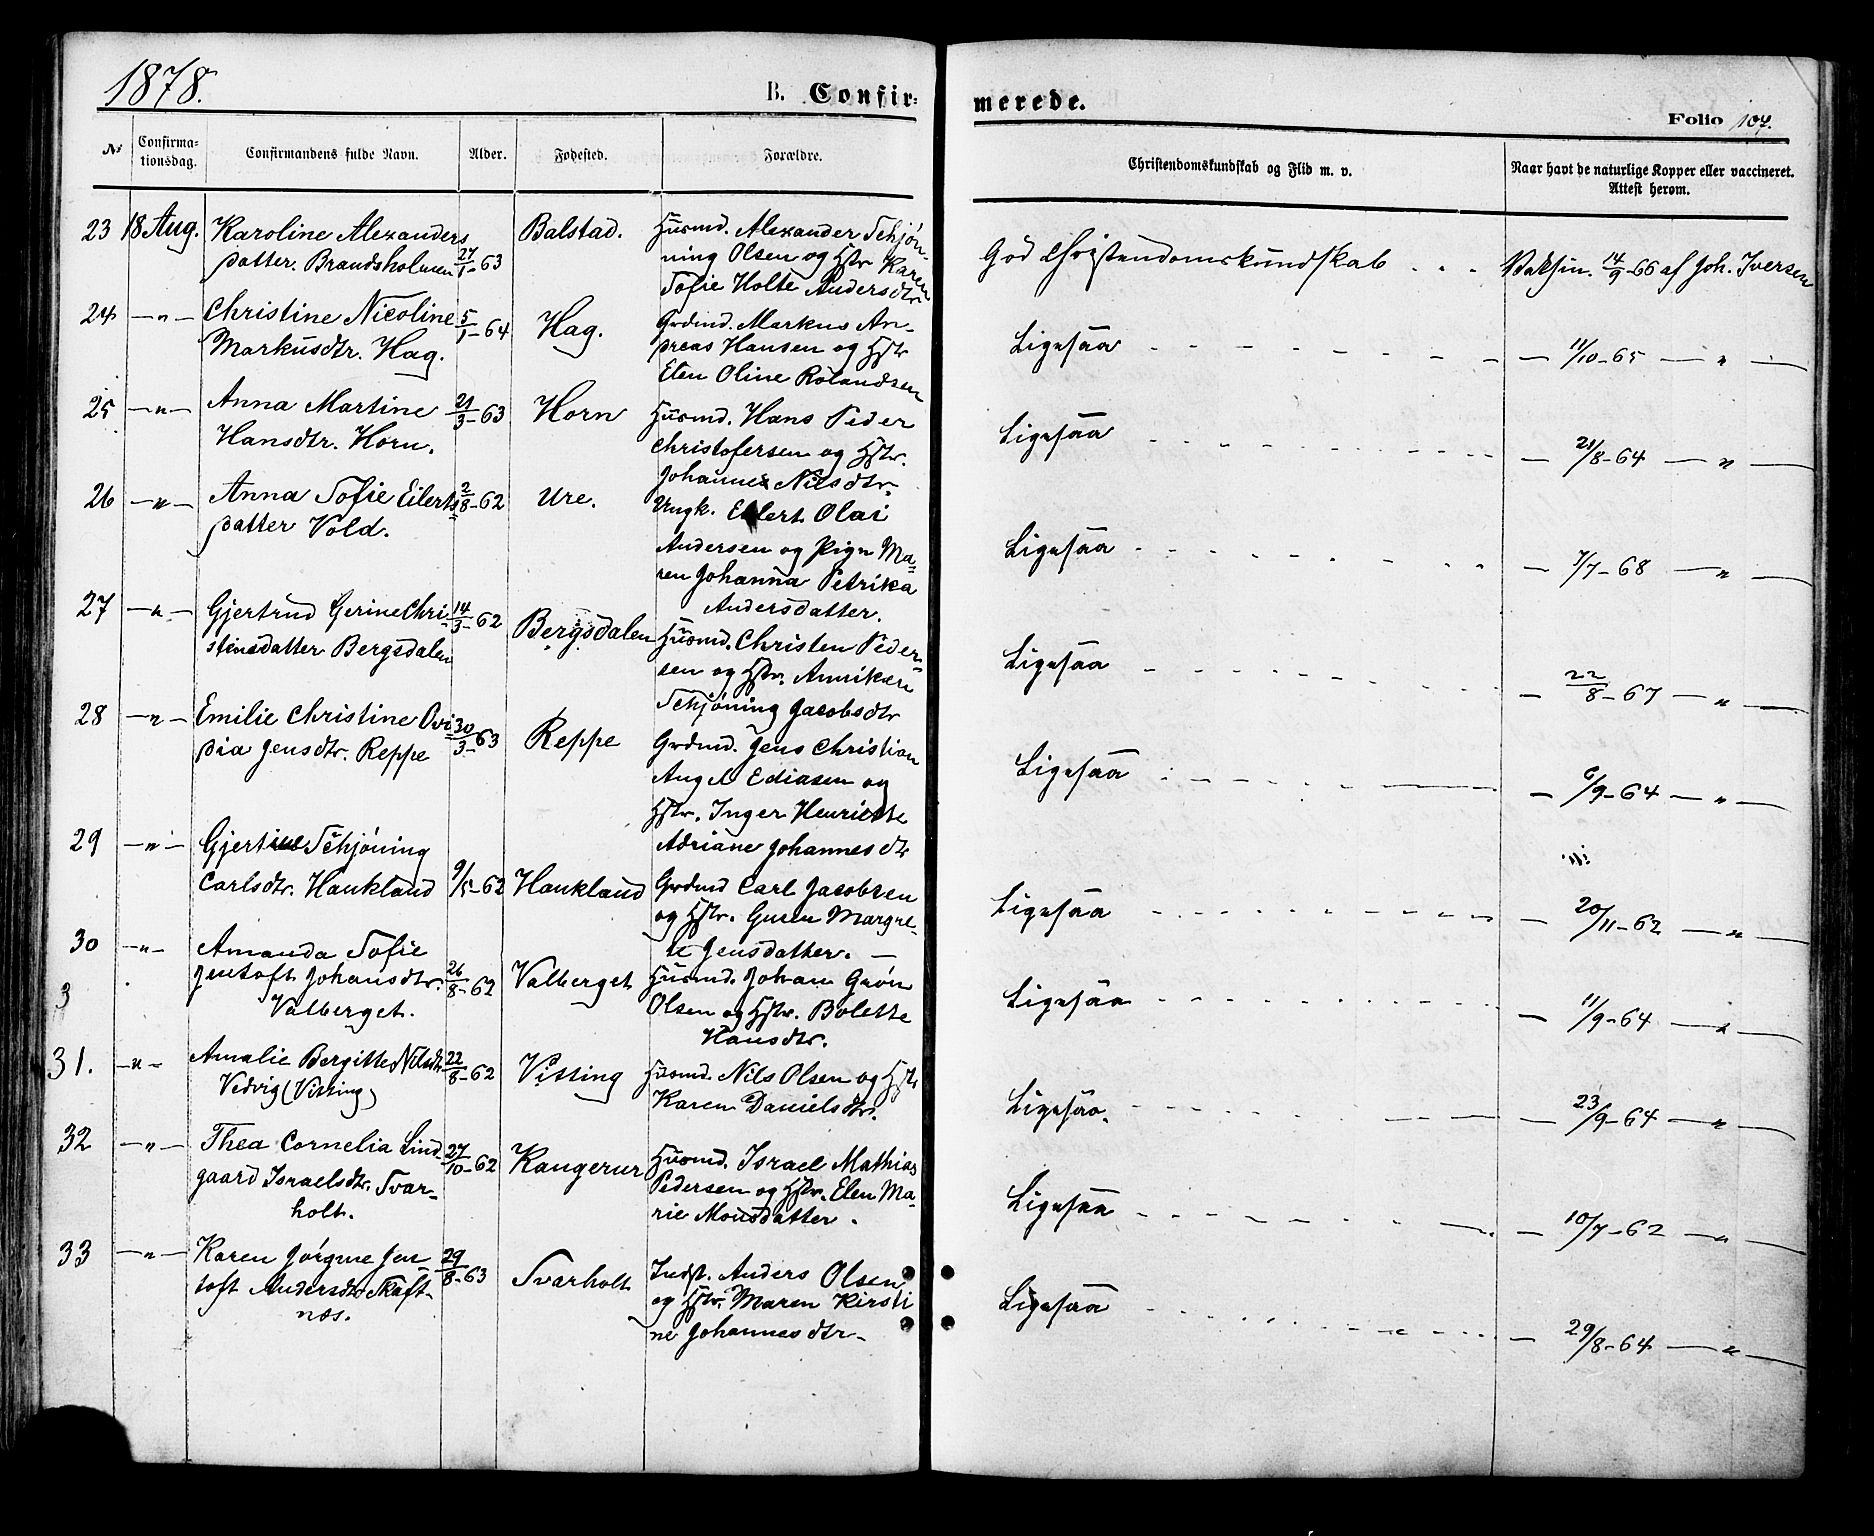 1878.
B. Confir-
merede.
Folio 107.
No
Confirma-
tionsdag.
Confirmandens fulde Navn.
Alder.
Fødested.
Forældre.
Christendomskundskab og Flid m. v.
Naar havt de naturlige Kopper eller vaccineret.
Attest herom.
23 18 Aug. Karoline Alexanders
datter. Brandsholmen 27/1-63 Balstad.
Husmd. Alexander Schjön-
ning Olsen og Hstr Karen
Sofie Holte Andersdtr
God Christendomskundskab . . . Vaksin. 14/9-66 af Joh. Iversen
24 -"- Christine Nicoline
Markusdtr. Hag. 5/1-64 Hag.
Grdmd. Markus An-
dreas Hansen og Hstr
Elen Oline Rolandsen
Ligesaa - 11/10-65 - " -
25 -"- Anna Martine
Hansdtr. Horn. 21/3-63 Horn
Husmd. Hans Peder
Christofersen og Hstr.
Johanne Nilsdtr.
Ligesaa - 21/8-64 - " -
26 -"- Anna Sofie Eilerts
datter Vold. 2/8-62 Ure.
Ungk. Eilert Olai
Andersen og Pige Ma-
ren Johanna Petrika
Andersdatter.
Ligesaa - 7/7-68 - " -
27 -"- Gjertrud Gerine Chri-
stensdatter Bergsdalen 14/3-62 Bergsdalen
Husmd. Christen Peder-
sen og Hstr. Annikken
Schjöning Jacobsdtr
Ligesaa - 22/8-67 - " -
28 -"- Emilie Christine Ovi-
dia Jensdtr. Reppe 30/3-63 Reppe
Grdmd. Jens Christian
Angel Ediasen og
Hstr. Inger Henriette
Adriane Johannesdtr
Ligesaa - 6/9-64 - " -
29 -"- Gjertine Schjöning
Carlsdtr. Haukland 9/5-62 Haukland
Grdmd Carl Jacobsen
og Hstr. Guren Margre-
te Jensdatter. -
Ligesaa - 20/11-62 - " -
30 -"- Amanda Sofie
Jentoft Johansdtr.
Valberget. 26/8-62 Valberget
3
Husmd. Johan Grön
Olsen og Hstr. Bolette
Hansdtr.
Ligesaa - 11/9-64 - " -
31. -"- Amalie Bergitte Nilsdtr
Vedvig (Vitting) 22/8-62 Vitting
Husmd. Nils Olsen og Hstr
Karen Danielsdtr.
Ligesaa. - 23/9-64 - " -
32 -"- Thea Cornelia Lind-
gaard Israelsdtr. Svar-
holt. 27/10-62 Kangerur
Husmd. Israel Mathias
Pedersen og Hstr. Elen Ma-
rie Monsdatter.
Ligesaa - 10/7-62 - " -
33 -"- Karen Jörgine Jen-
toft Andersdtr Skaft-
næs. 29/8-63 Svarholt
Indst. Anders Olsen
og Hstr. Maren Kirsti
ne Johannesdtr-
Ligesaa - 29/8-64 - " -